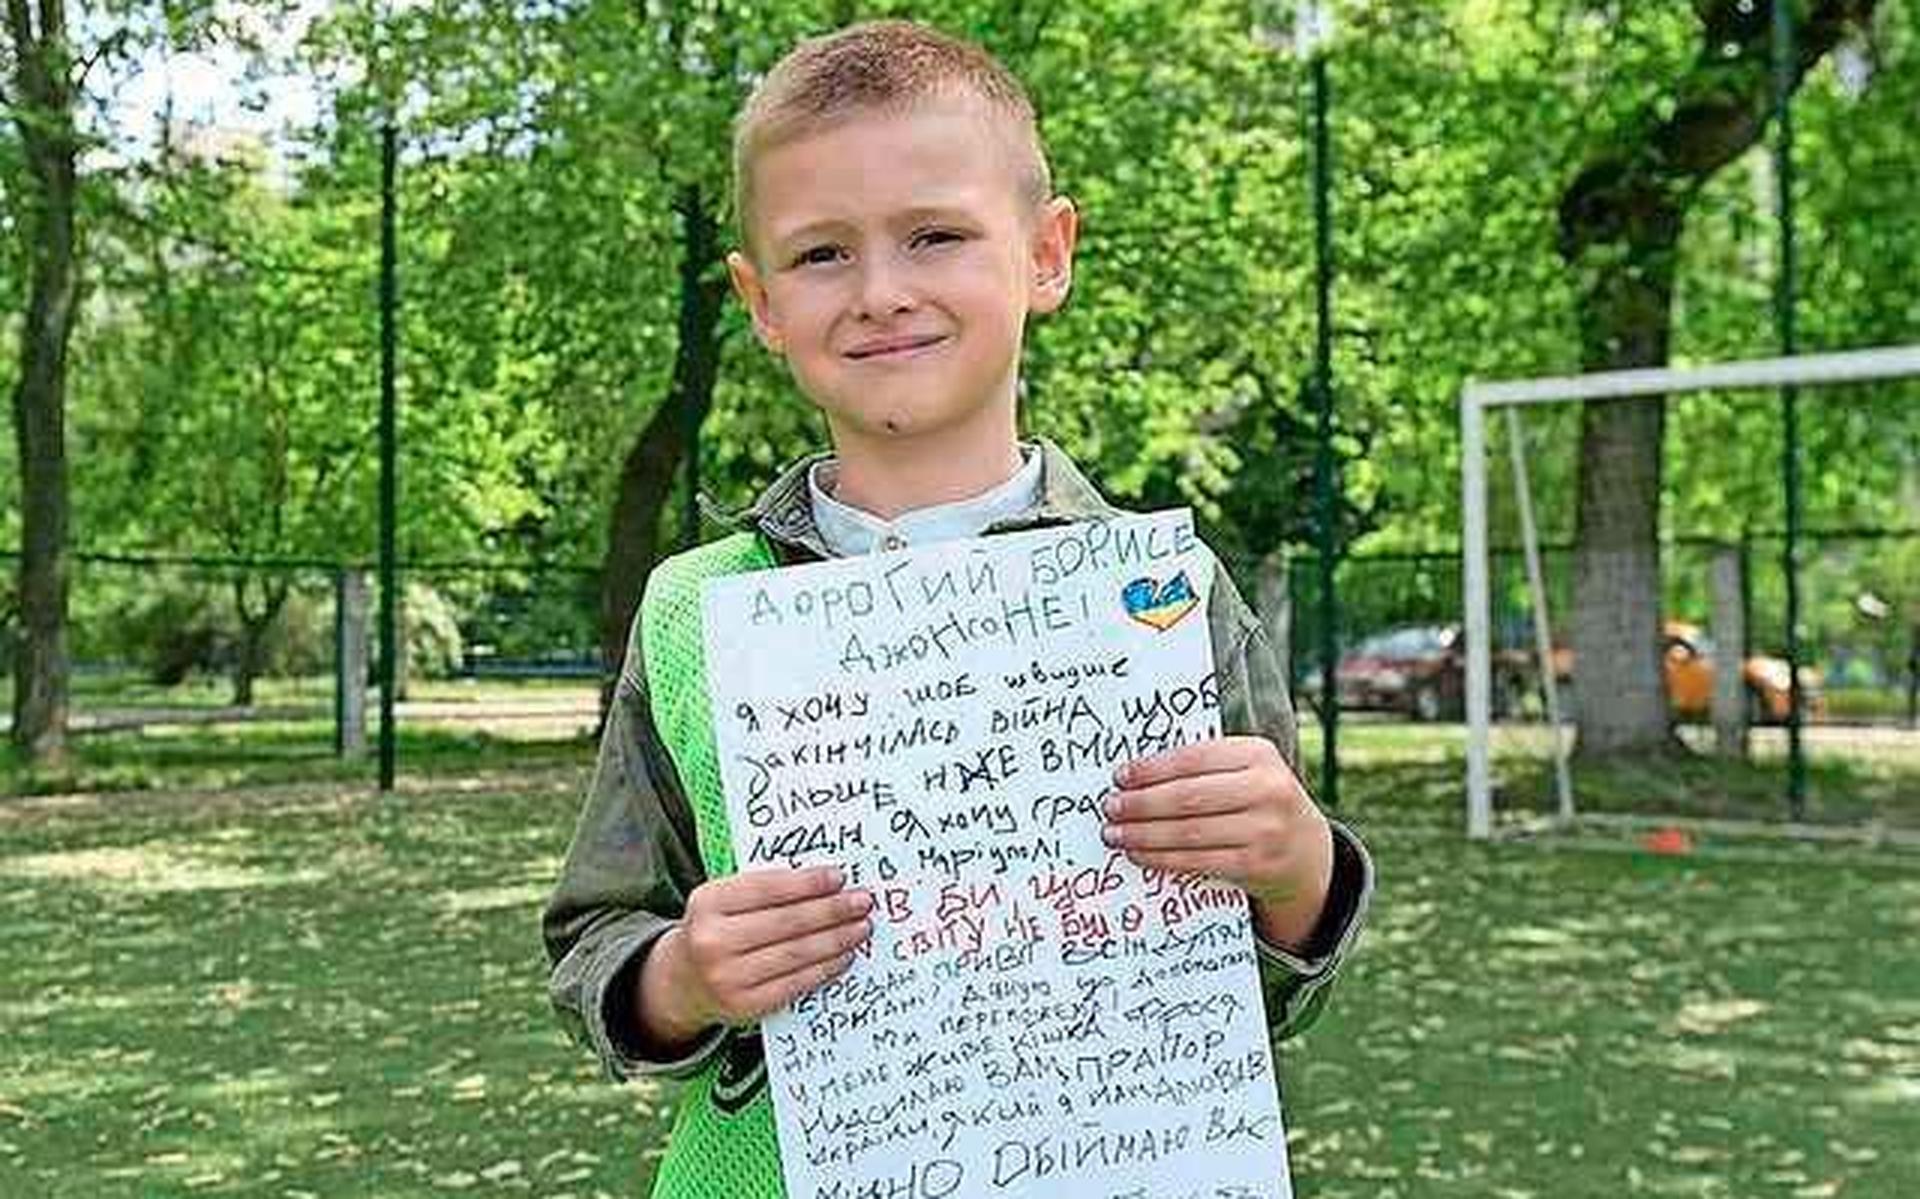 ДОРОГИЙ БОРИСЕ
ДжоНсоНЕ!
Я ХОЧУ ЩОБ швидше
ЗАКІНЧІЛАСЬ ВІЙНА ЩОБ
БІЛЬШЕ НЖЕ ВМИРАЛИ
Я хочу
В Маріуполі.
БИ ЩОБ
СВІТУ НЕ БУЛО ВІЙНИ
ПЕРЕДАЮ ПРИВІТ ВСІМ ДІТЯМ
У БРИТАНІЇ ДЯКУЮ за допомогу
МИ ПЕРЕМОЖЕМ!
У МЕНЕ ЖИВЕ КІШКА ФРОСЯ
НАДСИЛАЮ ВАМ ПРАПОР
УКРАЇНИ, ЯКИЙ Я НАМАЛЮВАВ
МІЦНО ОБІЙМАЮ ВАС